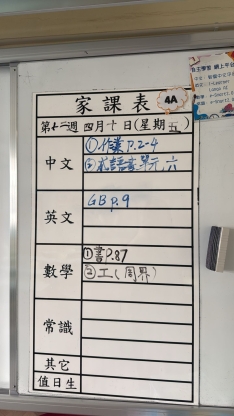 家課表 4A
第十二週 四月十日(星期五)
中文
①作業P.2-4
②成語語意單元六
英文
GB P.9
數學
①書P.87
②工(周界)
常識
其它
值日生